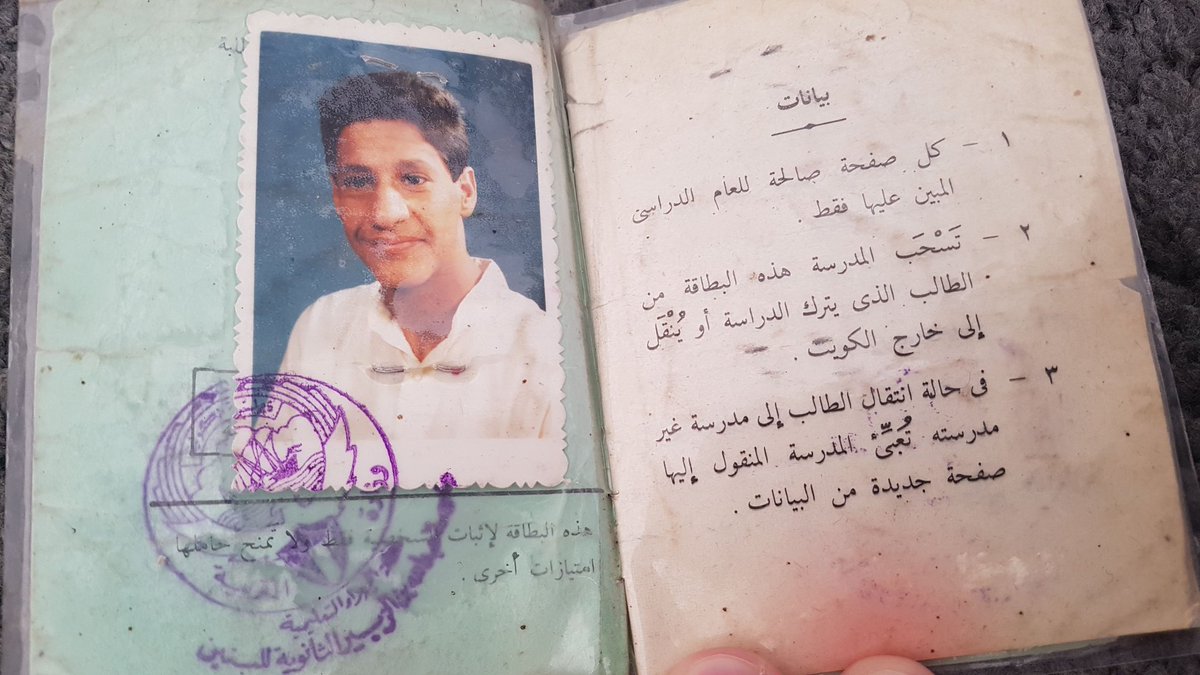 هذه البطاقة لإثبات الشخصية فقط ولا تمنح حاملها
امتيازات أخرى .
التعليمية
الثانوية للبنين
بيانات
١ - كل صفحة صالحة للعام الدراسى
المبين عليها فقط .
٢ - تَسْحَب المدرسة هذه البطاقة من
الطالب الذى يترك الدراسة أو يُنْقَل
إلى خارج الكويت .
٣ - فى حالة انْتقال الطالب إلى مدرسة غير
مدرسته تُعَبِّئْ المدرسة المنقول إليها
صفحة جديدة من البيانات .